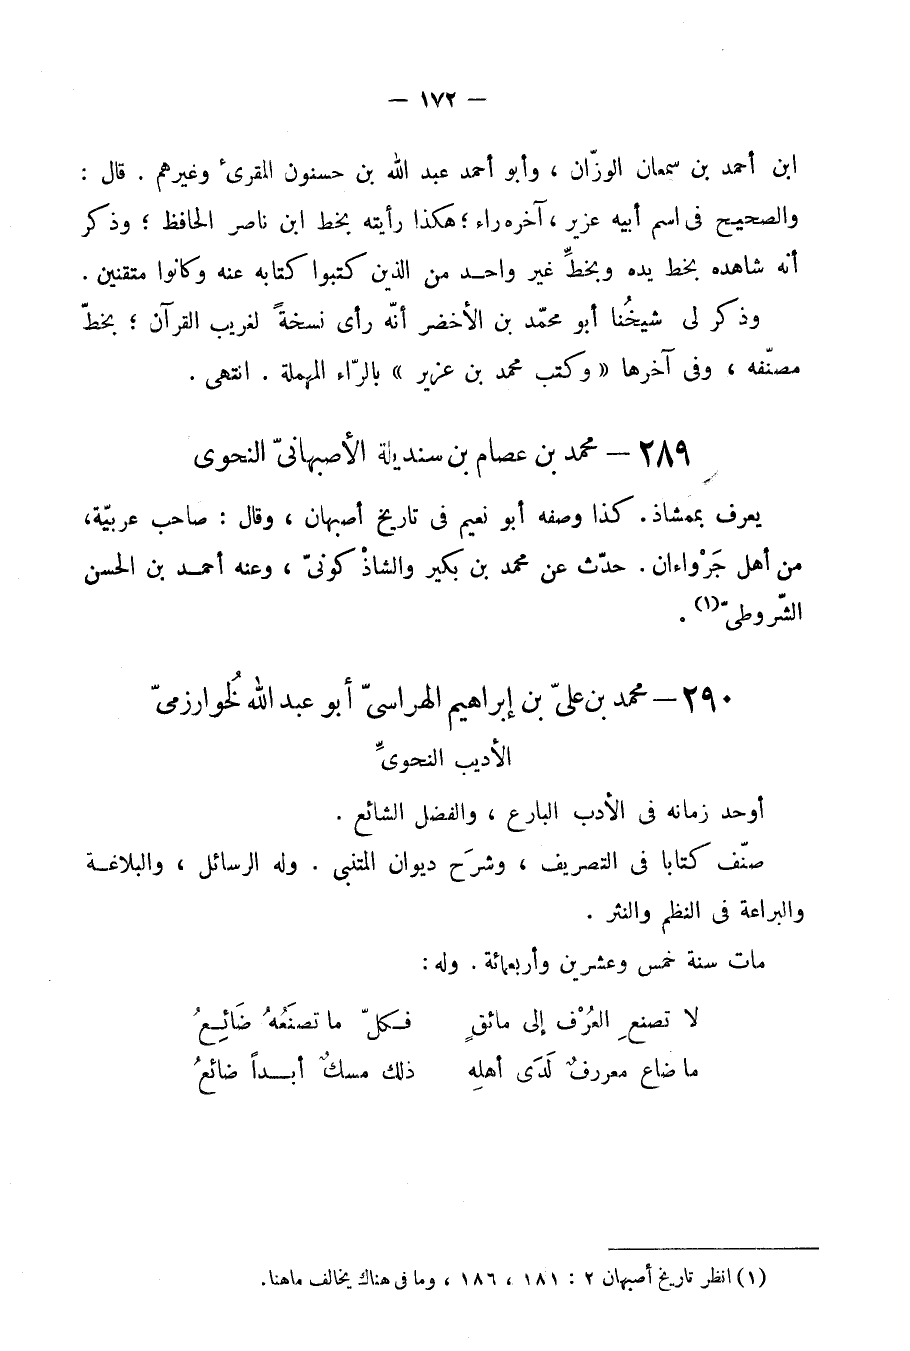 — ١٧٢ —
ابن أحمد بن سمعان الوزّان ، وأبو أحمد عبد الله بن حسنون المقرىء وغيرهم . قال :
والصحيح فى اسم أبيه عزير ، آخره راء ؛ هكذا رأيته بخط ابن ناصر الحافظ ؛ وذكر
أنه شاهده بخط يده وبخطِّ غير واحد من الذين كتبوا كتابه عنه وكانوا متقنين .
وذكر لى شيخُنا أبو محمّد بن الأخضر أنّه رأى نسخةً لغريب القرآن ؛ بخطّ
مصنّفه ، وفى آخرها « وكتب محمد بن عزير » بالرّاء المهملة . انتهى .
٢٨٩ – محمد بن عصام بن سنديلة الأصبهانىّ النحوى
يعرف بممشاذ . كذا وصفه أبو نعيم فى تاريخ أصبهان ، وقال : صاحب عربيّة،
من أهل جَرْواءان . حدّث عن محمد بن بكير والشاذْكونىّ ، وعنه أحمد بن الحسن
الشّروطىّ(١) .
٢٩٠ – محمد بن علىّ بن إبراهيم الهراسىّ أبو عبد الله لُخوارزمىّ
الأديب النحوىّ
أوحد زمانه فى الأدب البارع ، والفضل الشائع .
صنّف كتابا فى التصريف ، وشرَح ديوان المتنبى . وله الرسائل ، والبلاغة
والبراعة فى النظم والنثر .
مات سنة خمس وعشرين وأربعمائة . وله :
لا تصنعِ العُرْف إلى مائقٍ فكلّ ما تصنَعُهُ ضَائِعُ
ما ضاع معررفٌ لَدَى أهلِه ذلك مسكٌ أبداً ضائعُ
(١) انظر تاريخ أصبهان ٢ : ١٨١ ، ١٨٦ ، وما فى هناك يخالف ماهنا.